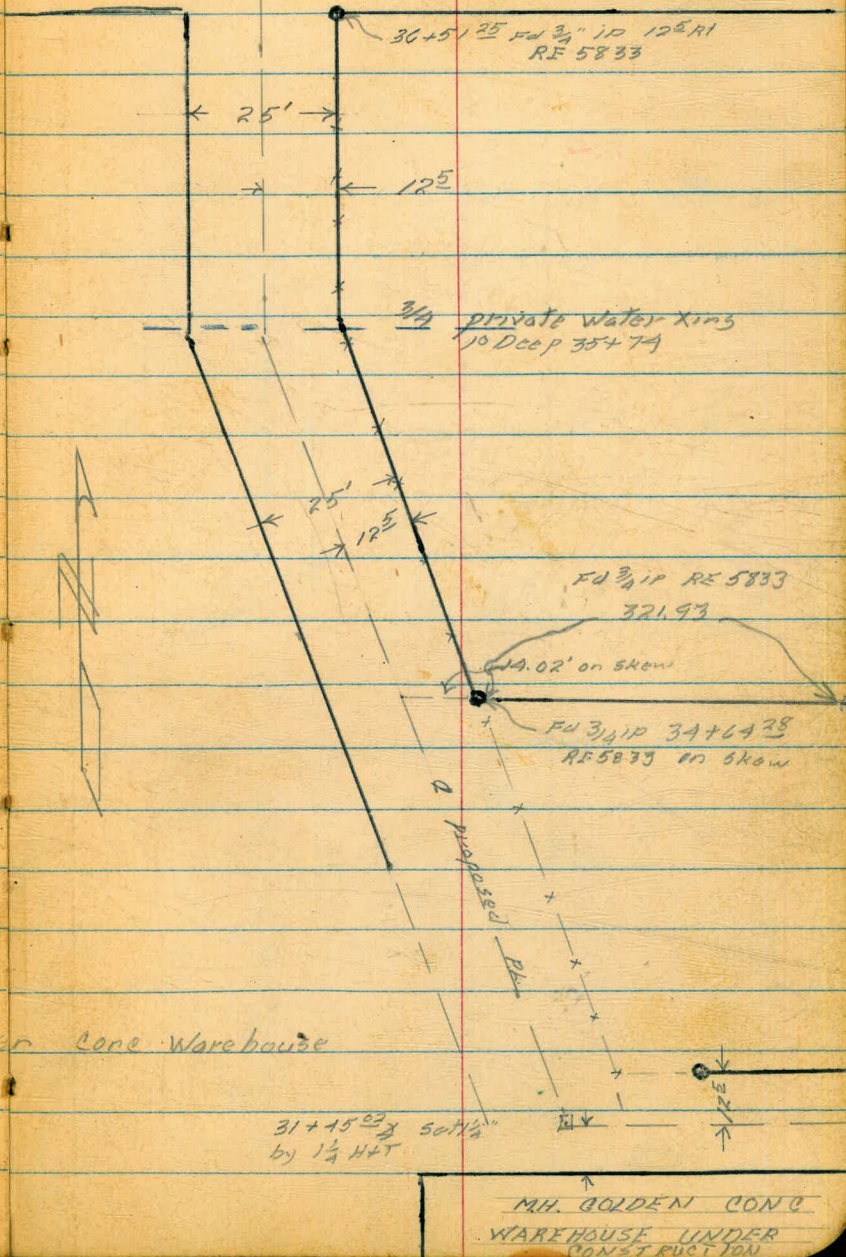 36+51 25 Fd 3/4" ip 12 5 Rt
RE 5833
25'
12 5
3/4 private Water Xing
10 Deep 35+74
25'
12 5
Fd 3/4 ip RE 5833
321.93
14.02' on skew
Fd 3/4 ip 34+64 28
RE 5833 on skew
proposed
N
Conc Warehouse
12 5
31+45 03 Set 1 1/4"
by 1 1/4 H+T
M.H. GOLDEN CONC
WAREHOUSE UNDER
CONSTRUCTION